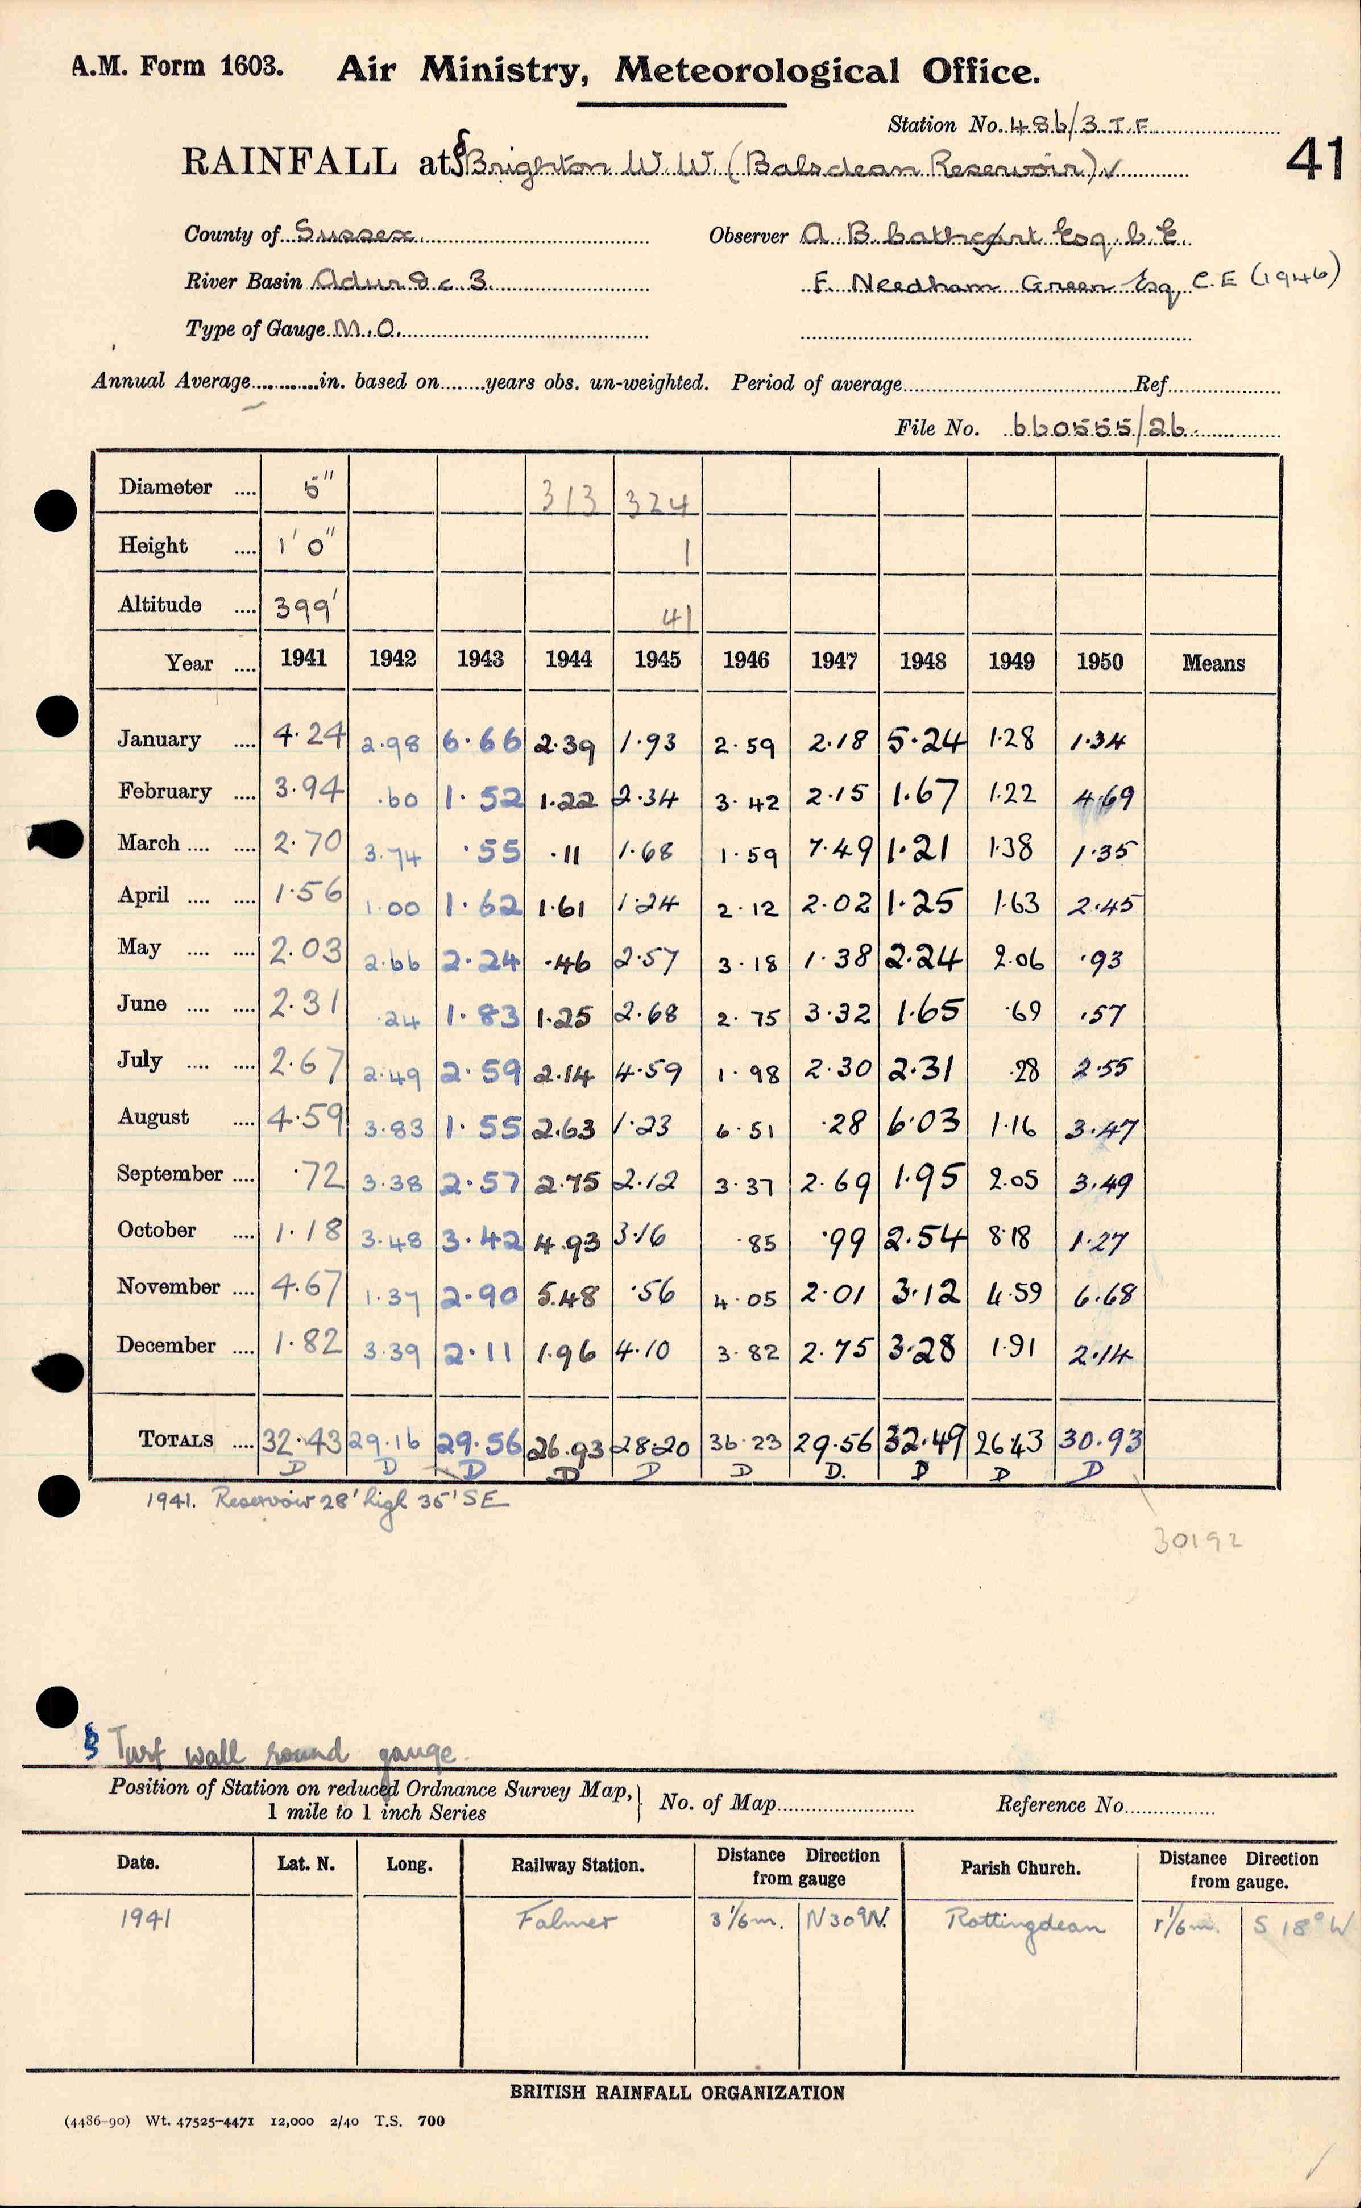 A.M. Form 1603. Air Ministry, Meteorological Office.
Station No. 486/3 I.F.
41
RAINFALL at § Brighton W.W. (Balsdean Reservoir) ✓
County of Sussex
Observer A. B. Cathcart Esq. C. E.
River Basin Adur &c. 3
F. Needham Green Esq C.E (1946)
Type of Gauge M.O.
Annual Average in. based on years obs. un-weighted. Period of average Ref.
File No. 660555/26
Diameter 5" 313 324
Height 1' 0" 1
Altitude 399' 41
Year 1941 1942 1943 1944 1945 1946 1947 1948 1949 1950 Means
January 4.24 2.98 6.66 2.39 1.93 2.59 2.18 5.24 1.28 1.34
February 3.94 .60 1.52 1.22 2.34 3.42 2.15 1.67 1.22 4.69
March 2.70 3.74 .55 .11 1.68 1.59 7.49 1.21 1.38 1.35
April 1.56 1.00 1.62 1.61 1.24 2.12 2.02 1.25 1.63 2.45
May 2.03 2.66 2.24 .46 2.57 3.18 1.38 2.24 2.06 .93
June 2.31 .24 1.83 1.25 2.68 2.75 3.32 1.65 .69 .57
July 2.67 2.49 2.59 2.14 4.59 1.98 2.30 2.31 .28 2.55
August 4.59 3.83 1.55 2.63 1.23 6.51 .28 6.03 1.16 3.47
September .72 3.38 2.57 2.75 2.12 3.37 2.69 1.95 2.05 3.49
October 1.18 3.48 3.42 4.93 3.16 .85 .99 2.54 8.18 1.27
November 4.67 1.37 2.90 5.48 .56 4.05 2.01 3.12 4.59 6.68
December 1.82 3.39 2.11 1.96 4.10 3.82 2.75 3.28 1.91 2.14
TOTALS 32.43 29.16 29.56 26.93 28.20 36.23 29.56 32.49 26.43 30.93
D D D D D D D. D D D
1941. Reservoir 28' high 35' SE
30192
§ Turf wall round gauge.
Position of Station on reduced Ordnance Survey Map, 1 mile to 1 inch Series } No. of Map Reference No.
Date. Lat. N. Long. Railway Station. Distance Direction from gauge Parish Church. Distance Direction from gauge.
1941 Falmer 3 1/6 m. N 30° W. Rottingdean 1 1/6 m. S 18° W
BRITISH RAINFALL ORGANIZATION
(4486-90) Wt. 47525-4471 12,000 2/40 T.S. 700